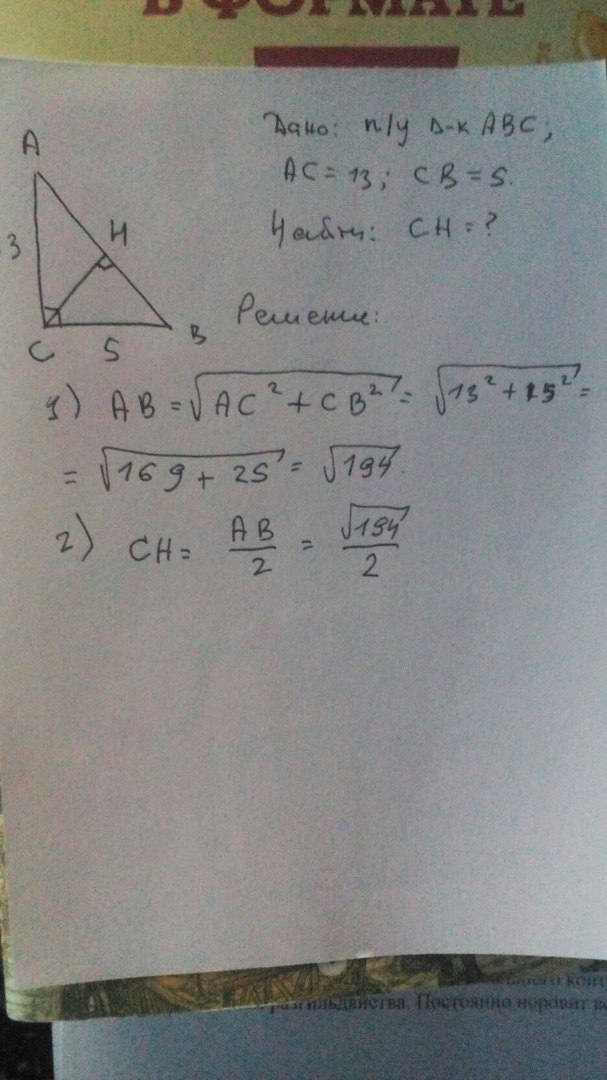 В ФОРМАТЕ
Дано: п/у Δ-к ABC;
AC = 13; CB = 5.
Найти: CH = ?
A
H
3
C 5 B
Решение:
1) AB = √AC² + CB² = √13² + 5² =
= √169 + 25 = √194.
2) CH = AB/2 = √194/2
разгильдяйства. Постоянно норовит